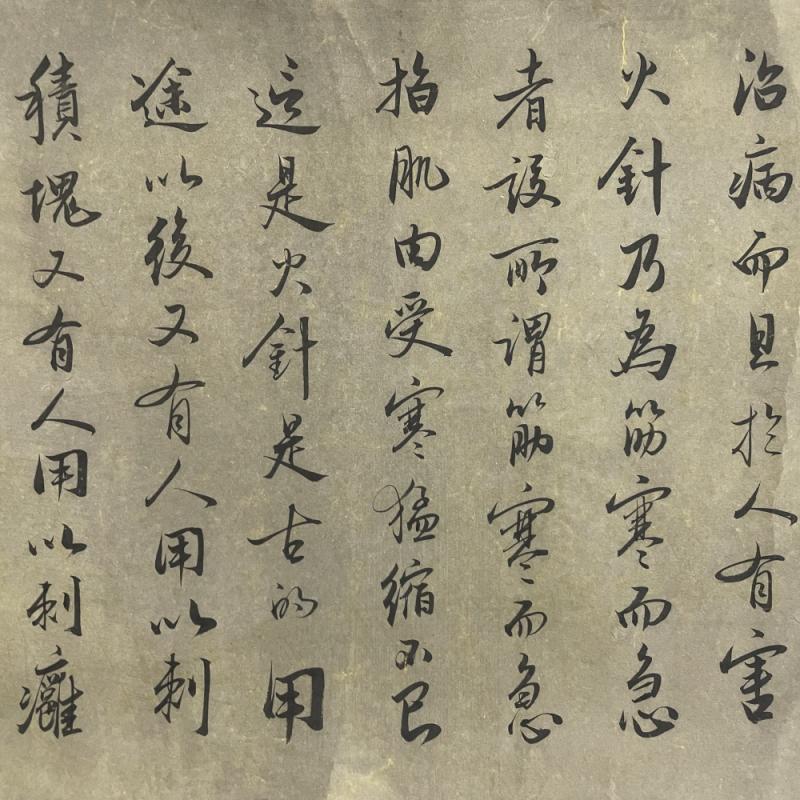 治病而且於人有害
火針乃為筋寒而急
者設所謂筋寒而急
指肌肉受寒猛縮不已
這是火針是古的用
途以後又有人用以刺
積塊又有人用以刺癰